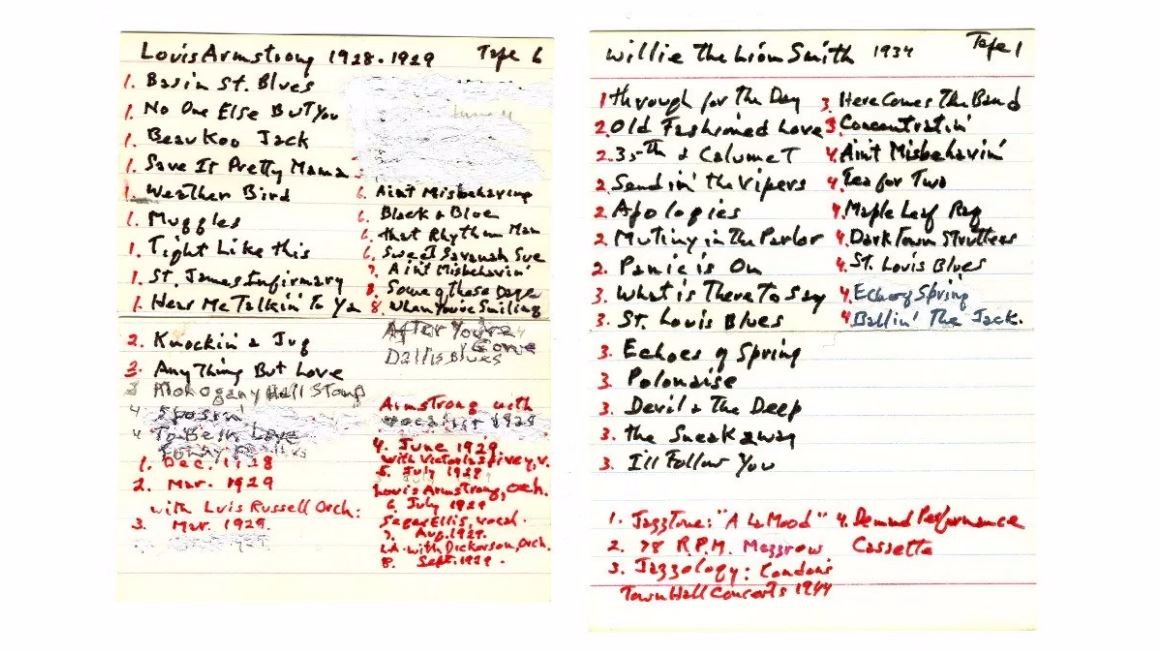 Louis Armstrong 1928-1929 Tape 6
1. Basin St. Blues
1. No One Else But You
1. Beau Koo Jack
1. Save It Pretty Mama
1. Weather Bird
1. Muggles
1. Tight Like this
1. St. James Infirmary
1. Hear Me Talkin' To Ya
2. Knockin a Jug
3. Any Thing But Love
3 Mohogany Hall Stomp
4 Sposin'
4 To Be In Love
1. Dec. 1928
2. Mar. 1929
with Luis Russell Orch:
3. Mar. 1929.
6. Ain't Misbehaving
6. Black & Blue
6. that Rhythm Man
6. Sweet Savanah Sue
7. Ain't Misbehavin'
8. Some of these Days
8. When You're Smiling
After You've Gone
Dallis Blues
Armstrong with
vocalist 1929
4. June 1929
with Victoria Spivey, v.
5. July 1929
Louis Armstrong, Orch.
6. July 1929
Seger Ellis, vocal.
7. Aug. 1929.
LA. with Dickerson, Orch.
8. Sept. 1929.
Willie the Lion Smith 1934 Tape 1
1 through for The Day
2. Old Fashioned Love
2. 35th & Calumet
2. Sendin' the Vipers
2. Apologies
2. Mutiny in The Parlor
2. Panic is On
3. What is There To Say
3. St. Louis Blues
3. Echoes of Spring
3. Polonaise
3. Devil & The Deep
3. the Sneakaway
3. I'll Follow You
3. Here Comes The Band
3 Concentratin'
4. Ain't Misbehavin'
4. Tea for Two
4. Maple Leaf Rag
4. Dark Town Strutters
4. St. Louis Blues
4. Echo of Spring
4 Ballin' The Jack.
1. JazzTone: "A La Mood"
2. 78 R.P.M. Mezzrow
3. Jazzology: Condons
Town Hall Concerts 1944
4. Demund Performance
Cassette